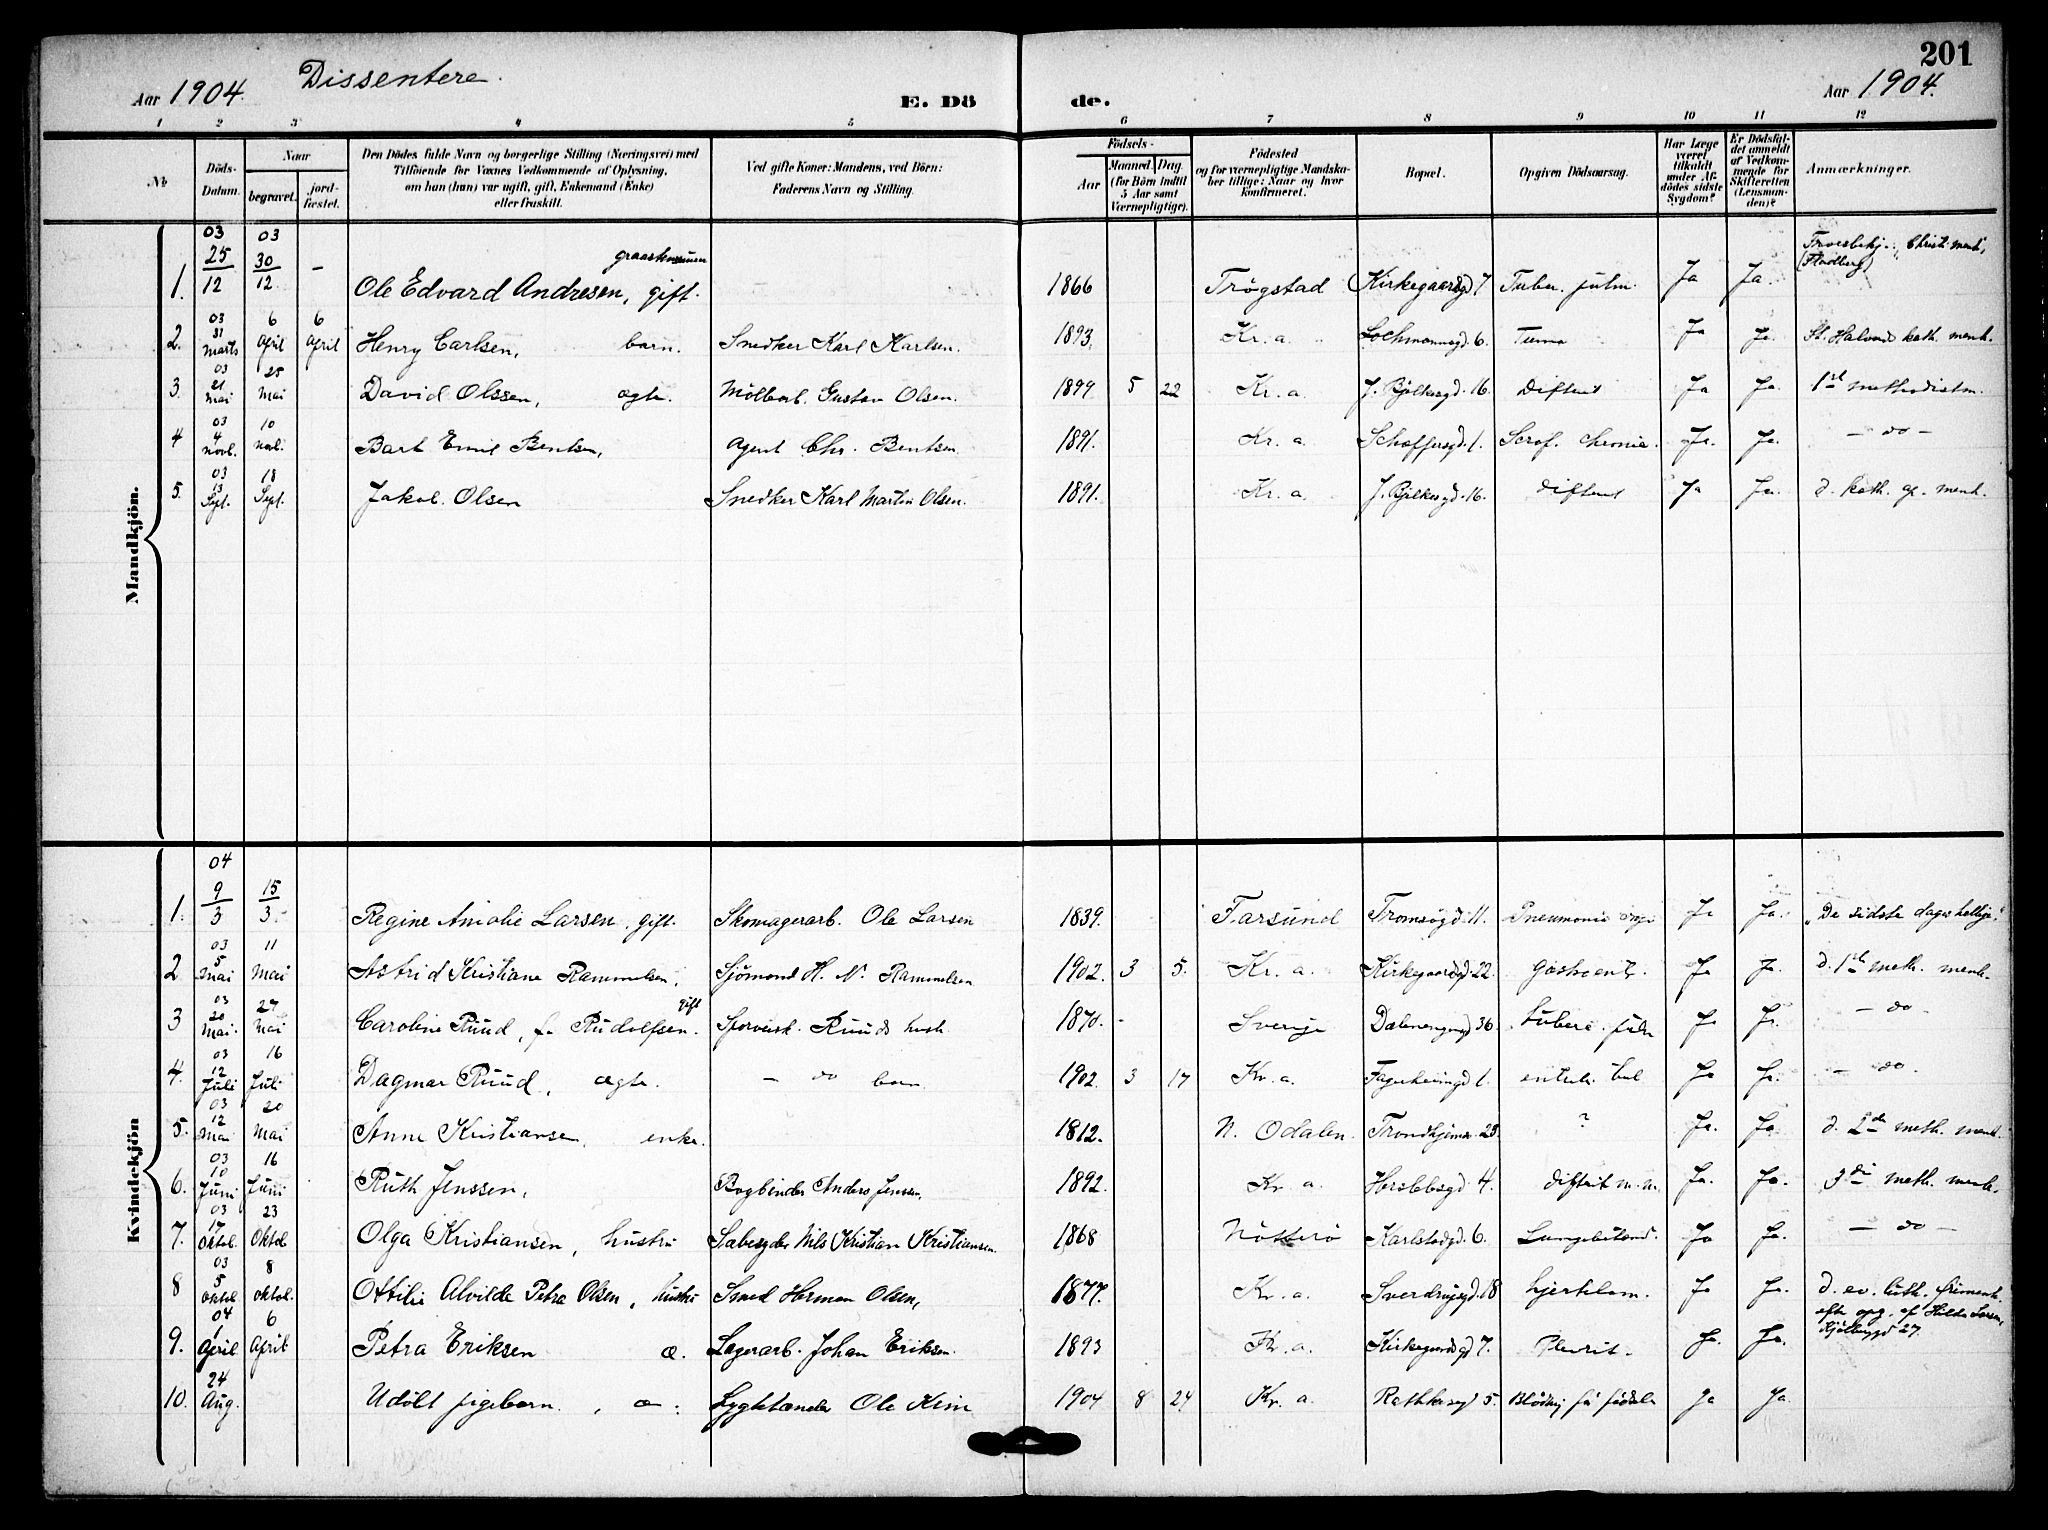 201
Aar 1904. Dissentere E. Dö de. Aar 1904.
1 2 3 4 5 6 7 8 9 10 11 12
No.
Döds-Datum.
Naar
begravet.
jord-fæstet.
Den Dödes fulde Navn og borgerlige Stilling (Næringsvei) med
Tilföiende for Voxnes Vedkommende af Oplysning,
om han (hun) var ugift, gift, Enkemand (Enke)
eller fraskilt.
Ved gifte Koner: Mandens, ved Börn:
Faderens Navn og Stilling.
Födsels-
Aar
Maaned. Dag.
(for Börn indtil
5 Aar samt
Værnepligtige).
Födested
og for værnepligtige Mandska-
ber tillige: Naar og hvor
konfirmeret.
Bopæl.
Opgiven Dödsaarsag.
Har Læge
været
tilkaldt
under Af-
dödes sidste
Sygdom?
Er Dödsfal-
det anmeldt
af Vedkom-
mende for
Skifteretten
(Lensman-
den)?
Anmærkninger.
Mandkjön.
1. 03 25/12 03 30/12 – Ole Edvard Andresen, gift. 1866 Trögstad Kirkegaardsgd 7 Tuber. pulm. Ja Ja.
2. 03 31 Marts 6 April 6 April Henry Carlsen, barn. Snedker Karl Karlsen. 1893. Kr. a. Lochmannsgd. 6. Ja Ja. St. Halvards kath. menh.
3. 03 21 Mai 25 Mai David Olssen, ægte. Gustav Olsen. 1899 5 22 Kr. a. J. Bjelkesgd. 16. Difterit Ja Ja. 1ste methodistm.
4 03 4 Novb. 10 Novb. Bart Emil Bentsen, Agent Chr. Bentsen 1891. Kr. a. Schæffersgd. 1. Scrof. chronic. Ja. Ja. – do –
5. 03 13 Sept. 18 Sept. Jakob Olsen Snedker Karl Martin Olsen. 1891. Kr. a. J. Bjelkesgd. 16. Difterit Ja Ja. d. kath. ap. menh.
Kvindekjön
1. 04 9/3 15/3. Regine Amalie Larsen, gift. Skomagerarb. Ole Larsen 1839. Farsund Tromsögd. 11. Pneumonia Ja Ja. "De sidste dages hellige."
2 03 5 Mai 11 Mai Astrid Kristiane Rammelsen, Sjömand H. N. Rammelsen 1902. 3 5. Kr. a. Kirkegaardsgd. 22. Gastroent. Ja Ja. d. 1ste meth. menh.
3 03 20 Mai. 27 Mai Caroline Ruud, f. Rudolfsen. gift Sporveisk. Ruuds hust. 1870. - Sverige Dælenenggd 36. tuberc. pulm Ja Ja. – do
4. 03 12 Juli 16 Juli Dagmar Ruud, ægte. – do barn 1902. 3 17 Kr. a. Fagerheimgd 1. Ja Ja. – do.
5. 03 12 Mai 20 Mai Anne Kristiansen, enke. 1812. N. Odalen. Trondhjemsv. 23. ? Ja. Ja d. 2den meth. menh.
6. 03 10 Juni 16 Juni Ruth Jenssen, Bogbinder Anders Jensen, 1892. Kr. a. Herslebsgd. 4. Difterit m. m. Ja. Ja. 3die meth. menh.
7. 03 17 Oktob. 23 Oktob Olga Kristiansen, hustru Nils Kristian Kristiansen. 1868 Nötterö Karlstadgd. 6. Lungebetænd. Ja Ja. – do –
8 03 5 Oktob 8 Oktob. Ottilie Alvilde Petra Olsen, hustru Smed Herman Olsen, 1877. Kr. a. Sverdrupsgd. 18 hjertelam. Ja Ja. d. ev. luth. frimenh.
9. 04 1 April 6 April Petra Eriksen æ. Lagerarb. Johan Eriksen. 1893 Kr. a. Kirkegaardsgd 7. Plevrit. Ja. Ja.
10. 24 Aug. Udölt pigebarn, æ. Lygtetænder Ole Kim 1904 8 24 Kr. a. Rathkesgd 5. Ja Ja.